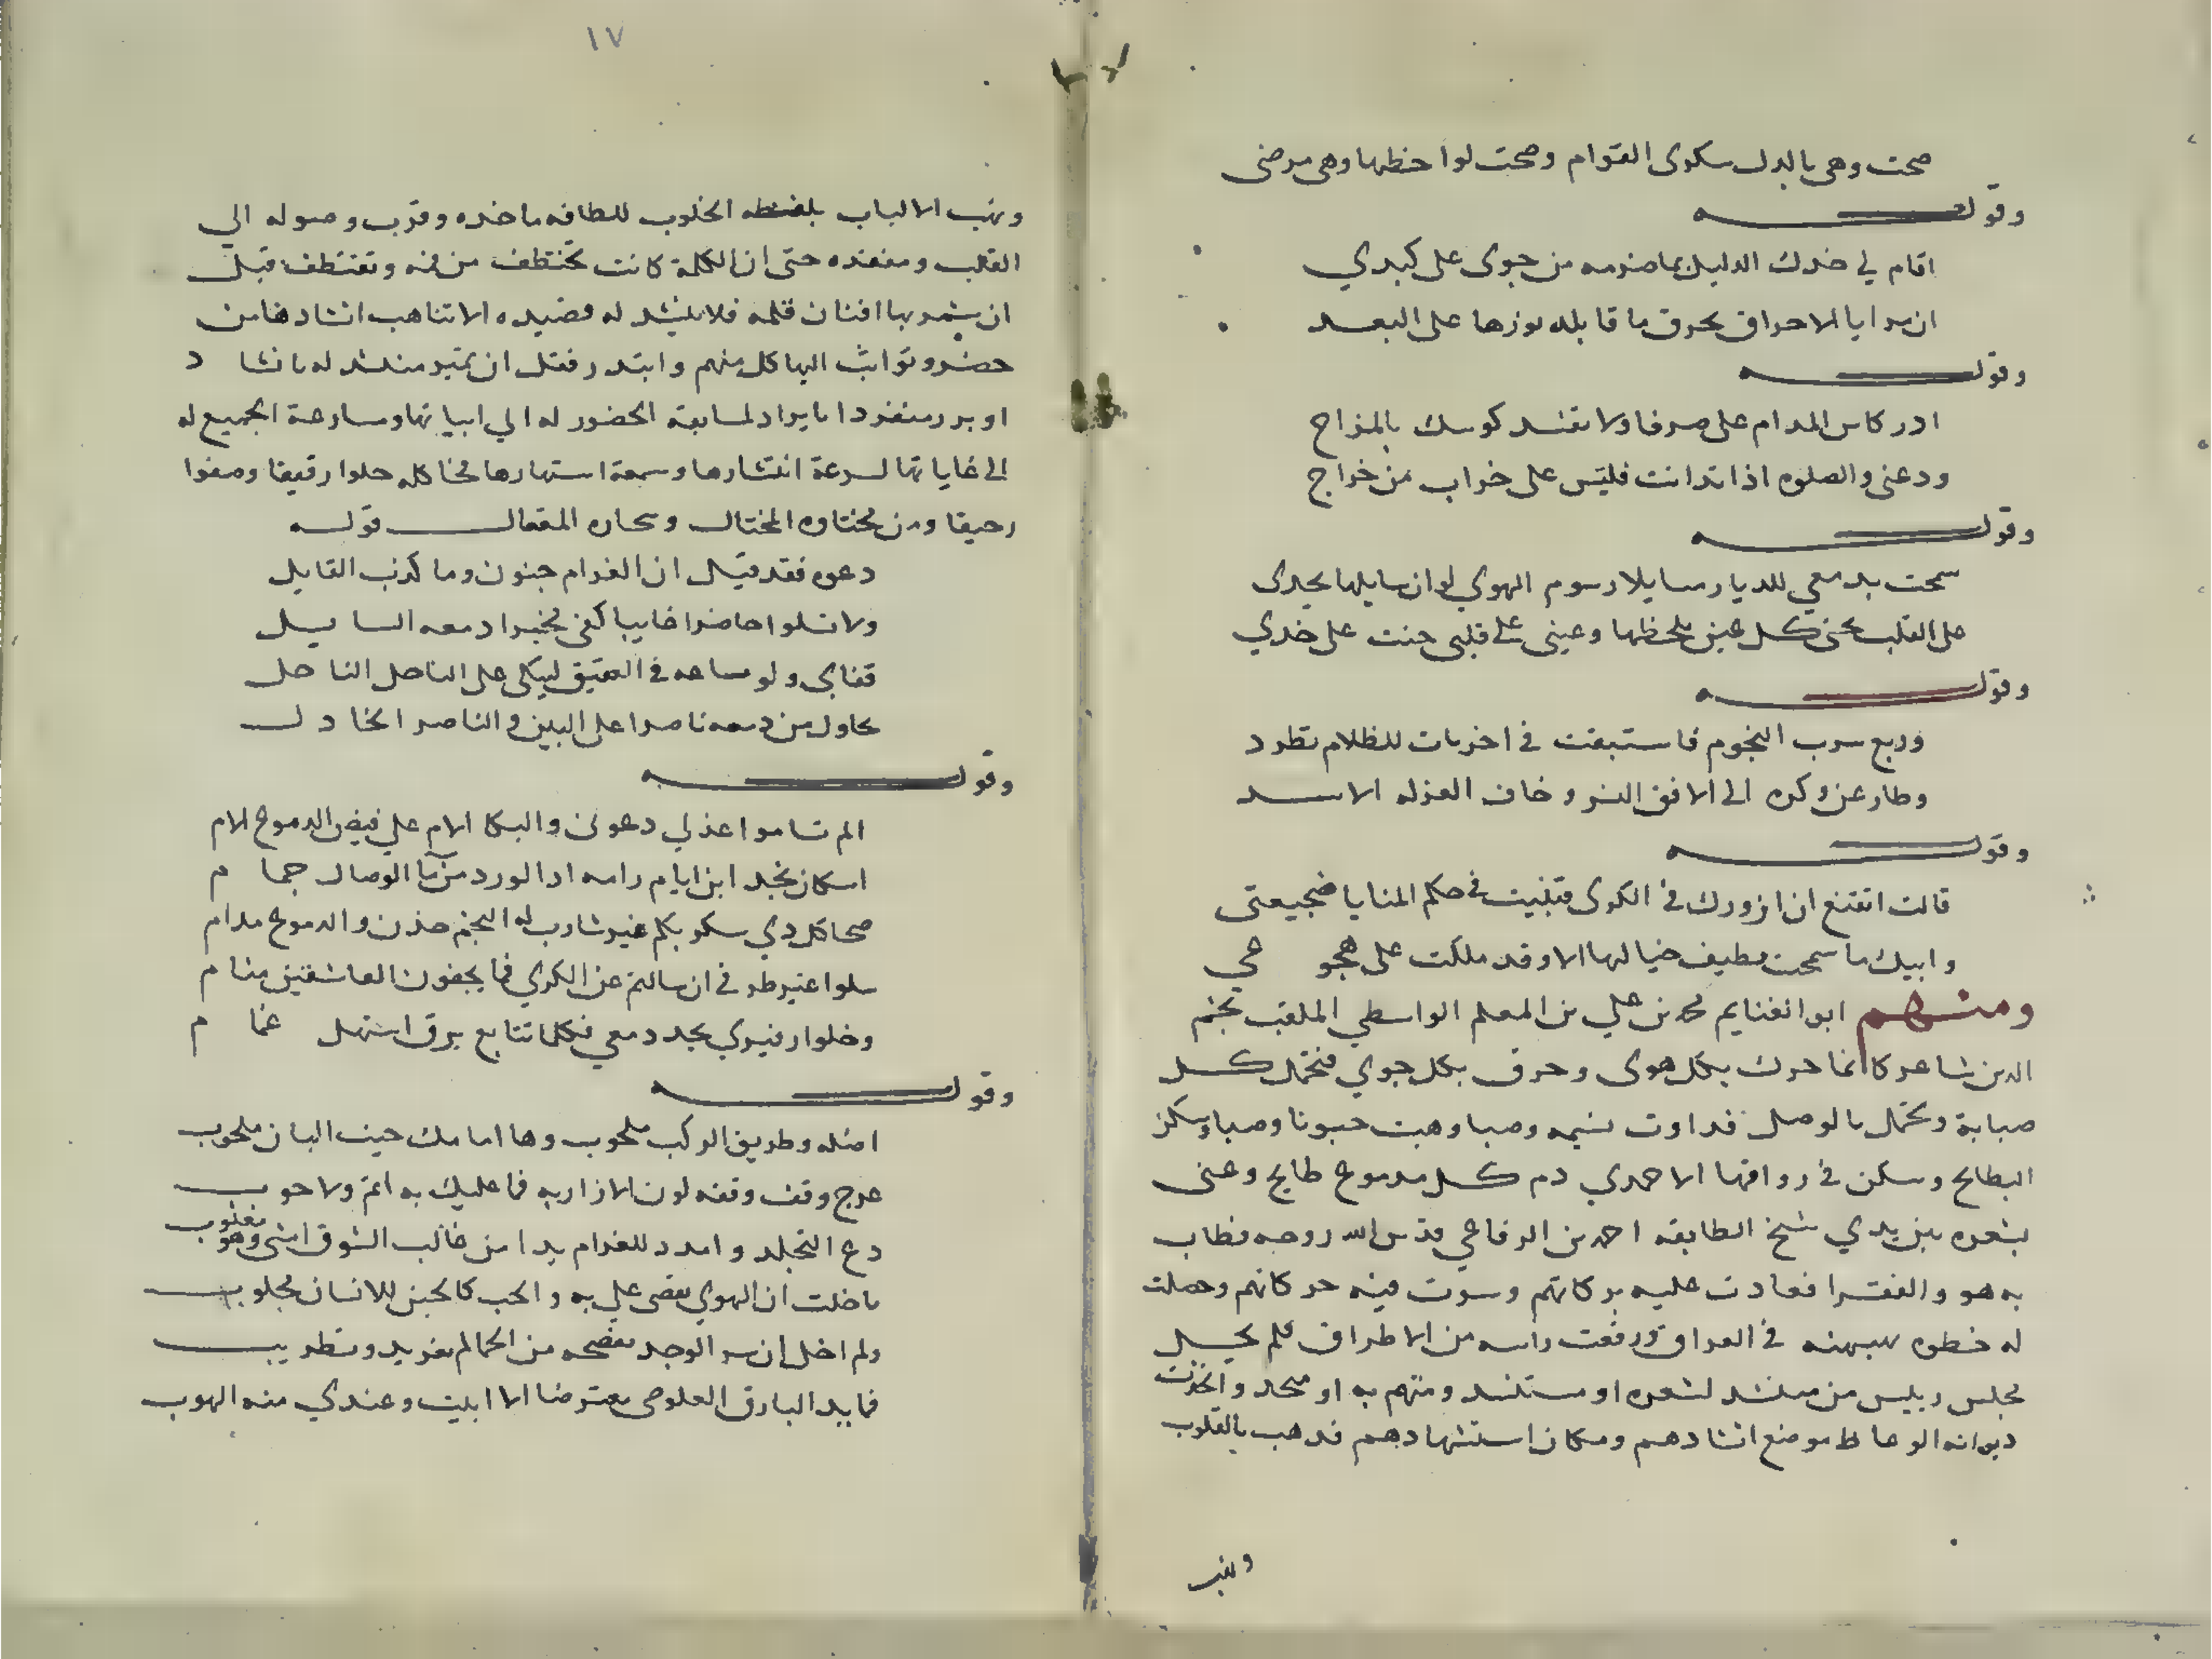 صحت وهي بالدل سكرى القوام وصحت لواحظها وهى مرضى
وقوله
اقام في خدك الدليل بما ضرمه من جوى على كبدي
ان مرايا الاحراق يحرق ما قابله نورها على البعد
وقوله
ادر كاس المدام على صرفا ولا تفسد كوسك بالمزاج
ودعنى والصلوه اذا تدانت فليس على خراب من خراج
وقوله
سمحت بدمعي للديار مسايلا رسوم الهوي لو ان سايلها يجدى
على القلب تجنى كل عين بلحظها وعينى على قلبى جنت على خدي
وقوله
وريع سرب النجوم فاستبقت في اخريات للظلام تطرد
وطار عن وكره الى الافق النسر وخاف العزله الاسد
وقوله
قالت اتقنع ان ازورك في الكرى فتبيت في حكم المنايا ضجيعتى
وابيك ما سمحت بطيف خيالها الا وقد ملكت على هجوعي
ومنهم ابو الغنايم محمد بن علي بن المعلم الواسطي الملقب بنجم
الدين شاعر كانما حرك بكل هوى وحرق بكل جوي فتحمل كل
صبابة وتحمل بالوصل فداوت نسيمه وصبا وهبت جنونا وصبا وسكن
البطايح وسكن في رواقها الاحمدي دم كل مدموع طايح وغنى
بشعره بين يدي شيخ الطايفه احمد بن الرفاعي قدس الله روحه فطاب
به هو والفقرا فعادت عليه بركاتهم وسرت فيه حركاتهم وحصلت
له خطوه بسببه في العراق ورفعت راسه من الاطراق فلم يخل
مجلس رييس من منشد لشعره او مستنشد ومتهم به او منجد واتخذت
ديوانه الوعاظ موضع انشادهم ومكان استشهادهم فذهب بالقلوب
ونهب
١٧
ونهب الالباب بلفظه الخلوب للطافه ماخذه وقرب وصوله الي
القلب ومنفذه حتى ان الكلمة كانت تختطف من فمه وتقتطف قبل
ان يثمر بها افنان قلمه فلا ينشد له قصيده الا تناهب انشادها من
حضر وتواثب اليها كل منهم وابتدر فقل ان يتميز منشد له بانشاد
او برر منفردا بايراد لمسابقة الحضور له الي ابياتها ومسارعة الجميع له
الى غاياتها لسرعة انتشارها وسمعة اشتهارها فخاكله حلوا رقيقا وصفوا
رحيقا ومن مختاره المختال وسحاره المقال قوله
دعوه فقد قيل ان الغرام جنون وما كذب القايل
ولا تسلوا حاضرا غايبا كفى مخبرا دمعه السايل
قفا بى ولو ساعه في العقيق ليبكى على الناحل الناحل
يحاول من دمعه ناصرا على البين والناصر الخاذل
وقوله
الم تساموا عذلي دعونى والبكا الام علي فيض الدموع الام
اسكان نجد اين ايام رامه اذ الورد من ما الوصال جمام
صحا كل ذي سكر بكم غير شارب له النجم خدن والدموع مدام
سلوا غير طرفي ان سالتم عن الكري فما بجفون العاشقين منام
وخلوا زفيري يجد دمعي فكلما تتابع برق استهل غمام
وقوله
اضله وطريق الركب ملحوب وها امامك حيث البان ملحوب
عرج وقف وقفه لوث الازار به فما عليك به اثم ولا حوب
دع التجلد وامدد للغرام يدا من غالب الشوق امسى وهو مغلوب
ما خلت ان الهوي يقضى علي به والحب كالحين للانسان مجلوب
ولم اخل ان سر الوجد يفضحه من الحمايم تغريد وتطريب
فما بدا البارق العلوي معترضا الا ابيت وعندي منه الهوب